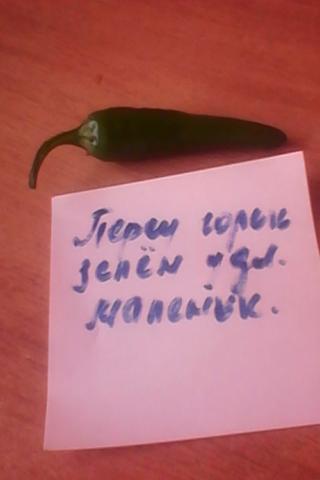 Перец горьк
зелён удл.
маленьк.